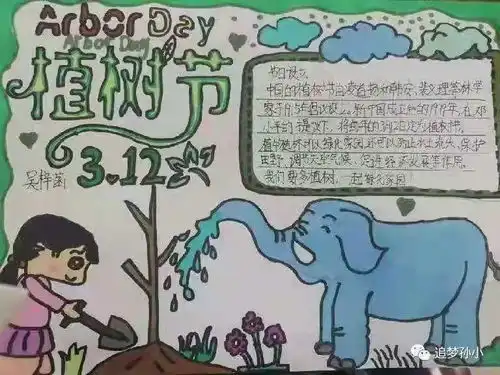 Arbor Day
Arbor Day
植树节
3.12
吴梓涵
节日设立
中国的植树节由凌道扬和韩安、裴义理等林学
家于1915年倡议设立。新中国成立后的1979年,在邓
小平的提议下,将每年的3月12日定为植树节。
植树造林可以绿化家园,还可以防止水土流失,保护
农田,调节天气气候,促进经济发展等作用。
我们要多植树,一起绿化家园!
追梦孙小